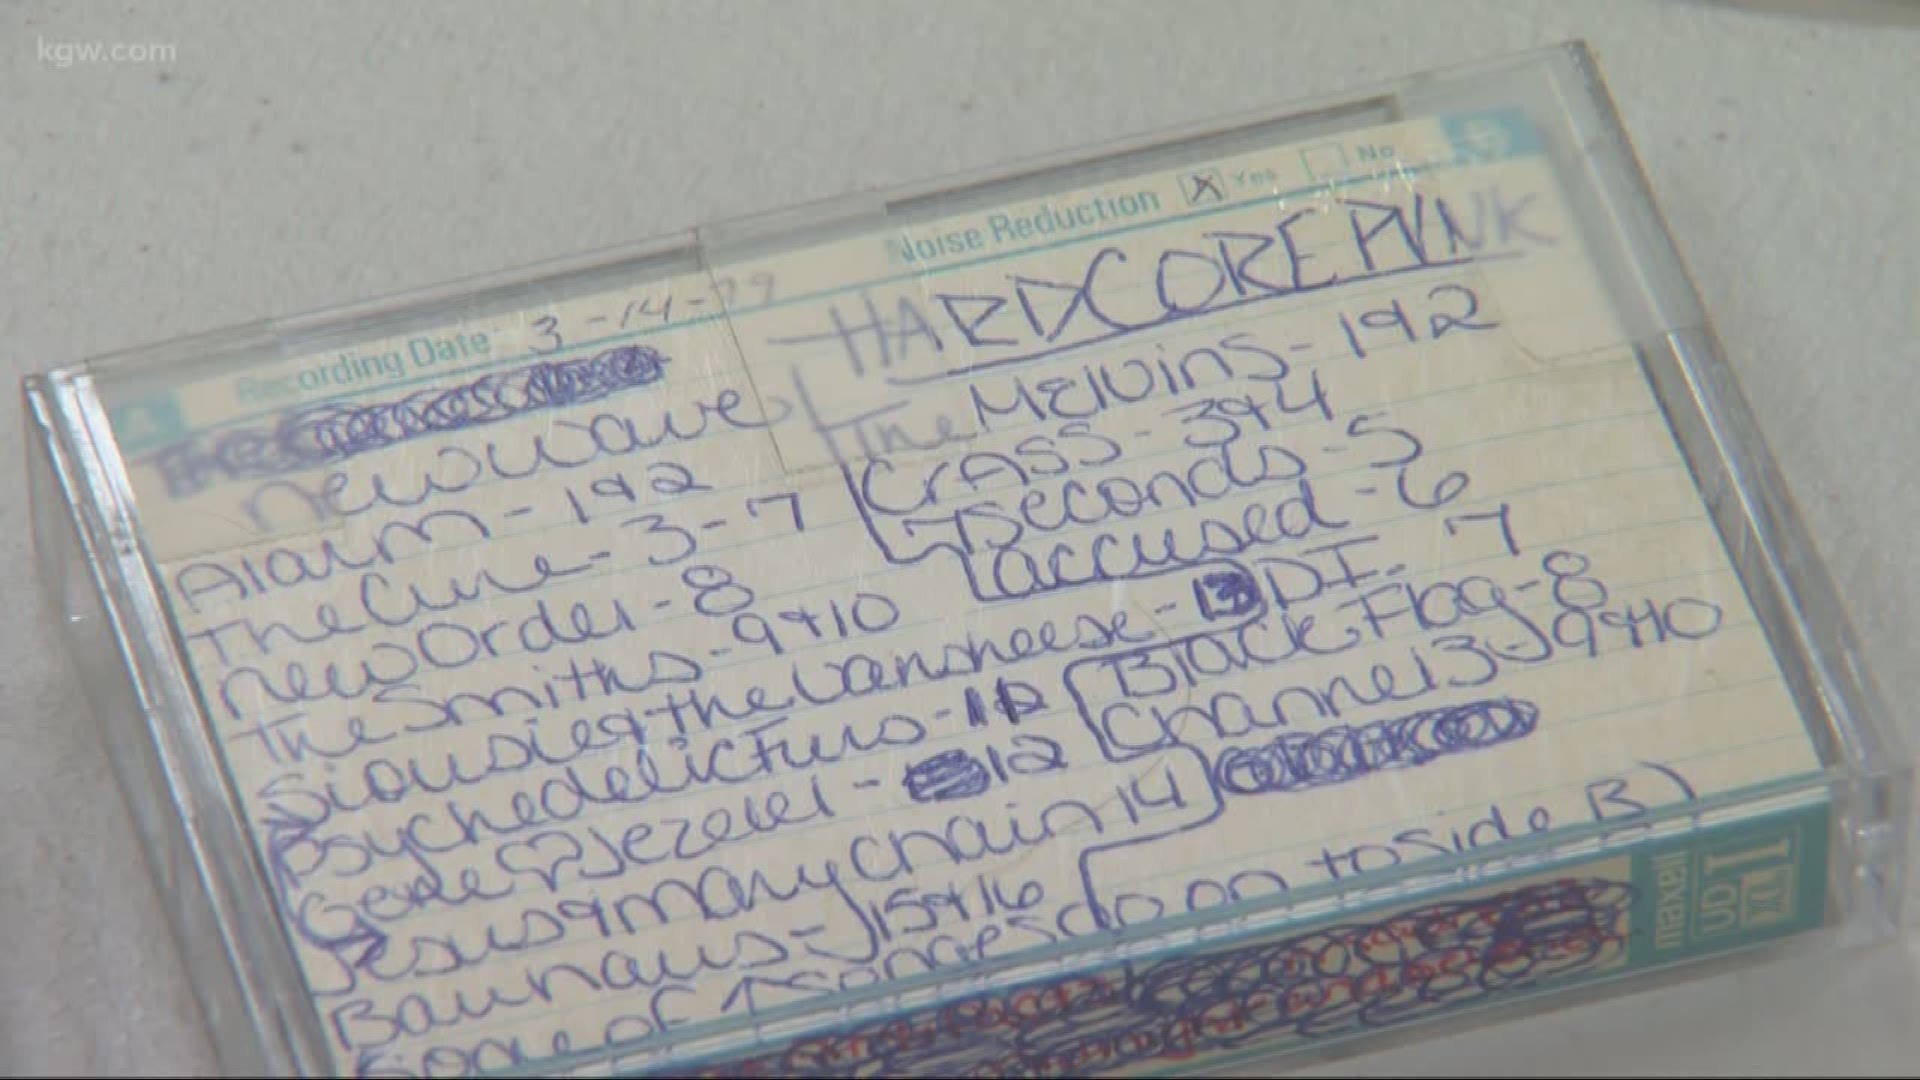 kgw.com
Noise Reduction X Yes No
Recording Date 3-14-
new wave
Alarm - 1+2
The Cure - 3-7
New Order - 8
The Smiths - 9+10
Siousie+the banshees e - 13
Psychedelic Furs - 11
Gene ♡ Jezebel - 12
Jesus+mary chain 14
Bauhaus - 15+16
Some of songes go on to side B)
HARDCORE PUNK
The Melvins - 1+2
CrASS - 3+4
7 seconds - 5
accused - 6
D.I. 7
Black Flag - 8
Channel 3 - 9+10
maxell
UD I
XL